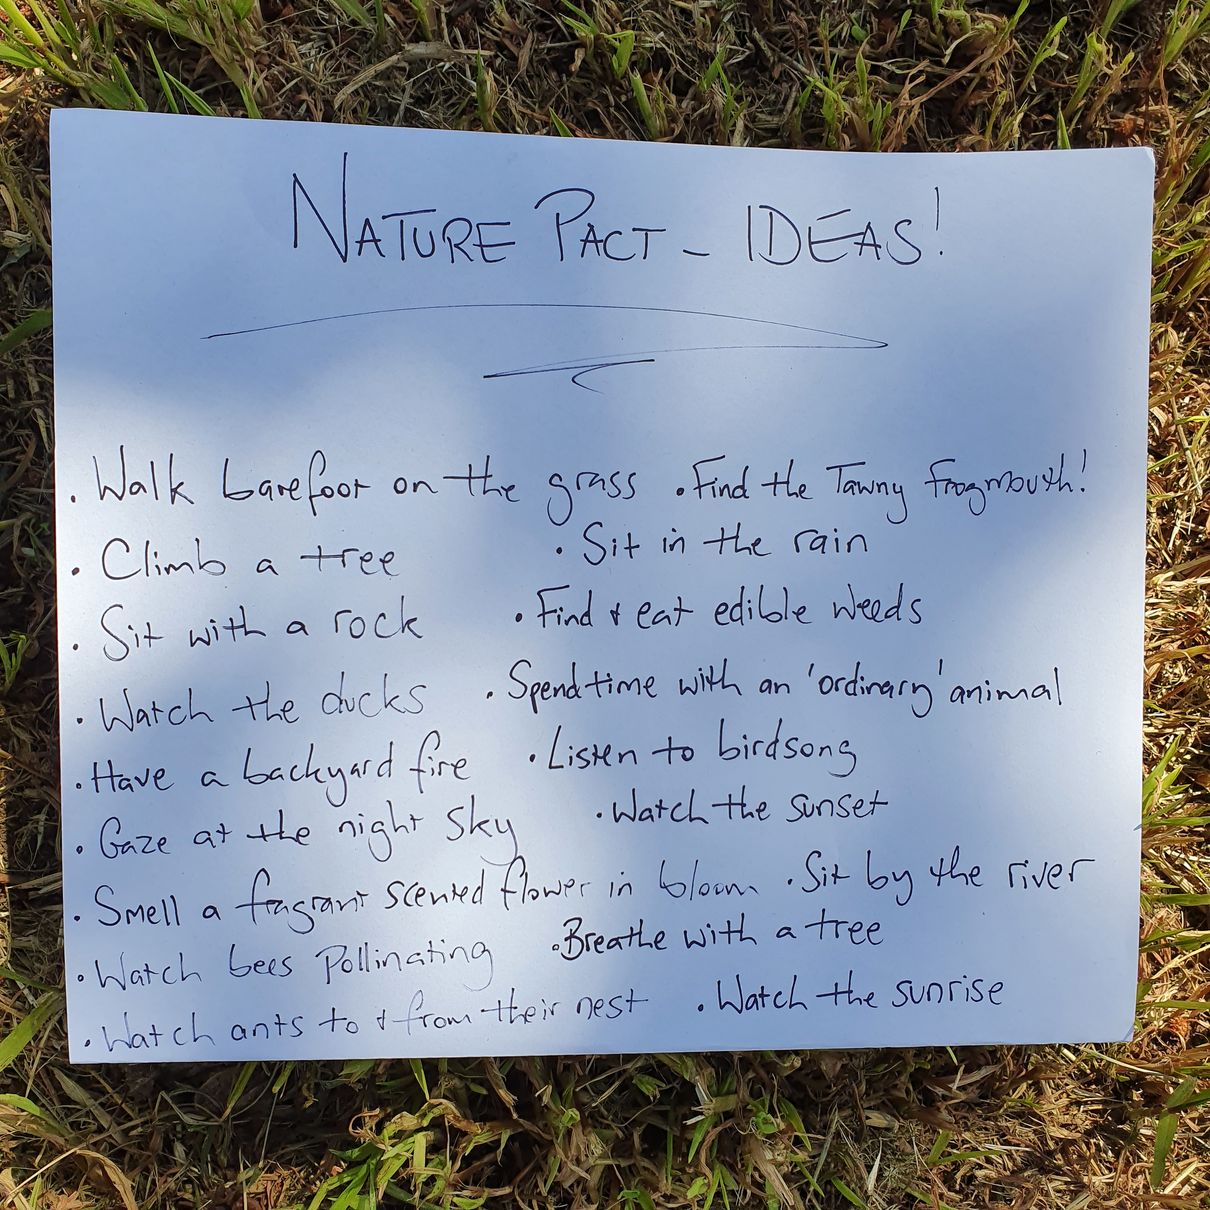 NATURE PACT - IDEAS!
. Walk barefoot on the grass . Find the Tawny Frogmouth!
. Climb a tree . Sit in the rain
. Sit with a rock . Find & eat edible weeds
. Watch the ducks . Spend time with an 'ordinary' animal
. Have a backyard fire . Listen to birdsong
. Gaze at the night sky . Watch the sunset
. Smell a fragrant scented flower in bloom . Sit by the river
. Watch bees Pollinating . Breathe with a tree
. Watch ants to & from their nest . Watch the sunrise